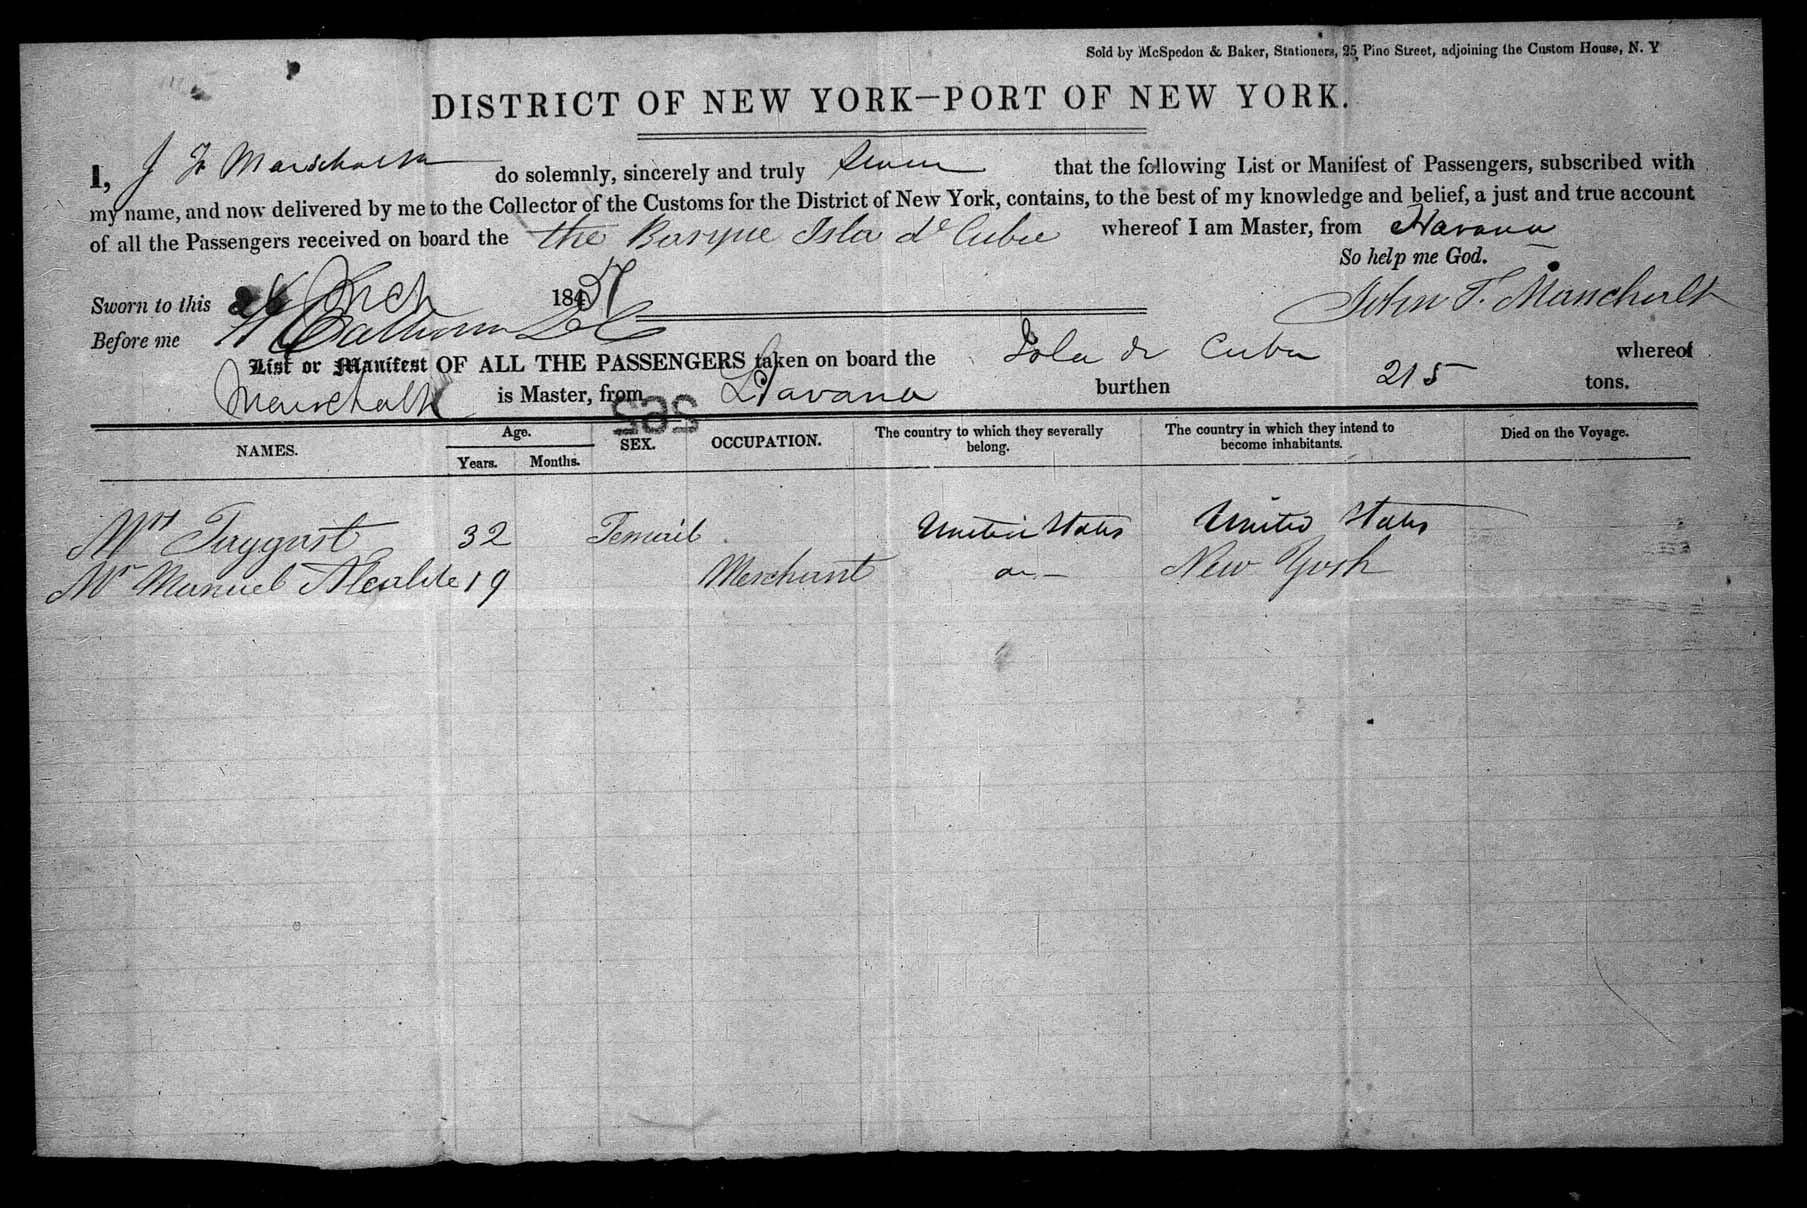 Sold by McSpedon & Baker, Stationers, 25 Pine Street, adjoining the Custom House, N. Y
DISTRICT OF NEW YORK—PORT OF NEW YORK.
I, J F Marschalk do solemnly, sincerely and truly swear that the following List or Manifest of Passengers, subscribed with
my name, and now delivered by me to the Collector of the Customs for the District of New York, contains, to the best of my knowledge and belief, a just and true account
of all the Passengers received on board the the Barque Isla de Cuba whereof I am Master, from Havana
So help me God.
Sworn to this 26 Mch 1851
John F. Marschalk
Before me
List or Manifest OF ALL THE PASSENGERS taken on board the Isla de Cuba whereof
Marschalk is Master, from Havana burthen 215 tons.
595
NAMES. Age. Years. Months. SEX. OCCUPATION. The country to which they severally belong. The country in which they intend to become inhabitants. Died on the Voyage.
32 Female United States United States
Mr Manuel Alcalde 19 Merchant do — New York